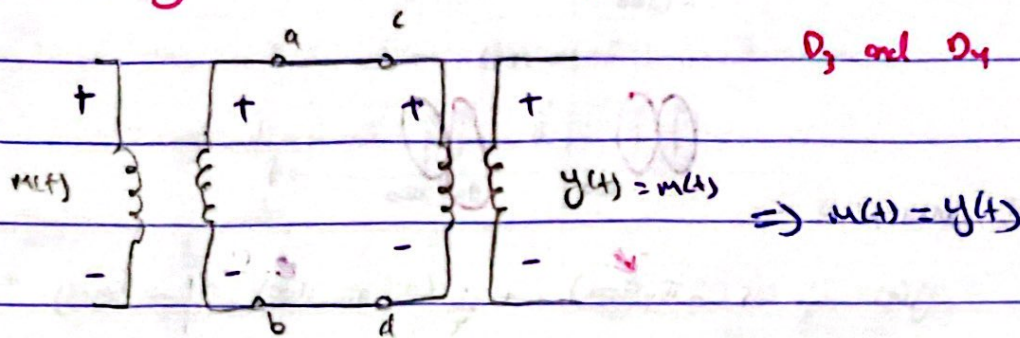 a c
D3 and D4
+ + + +
m(t) y(t) = m(t) => m(t) = y(t)
- - - -
b d